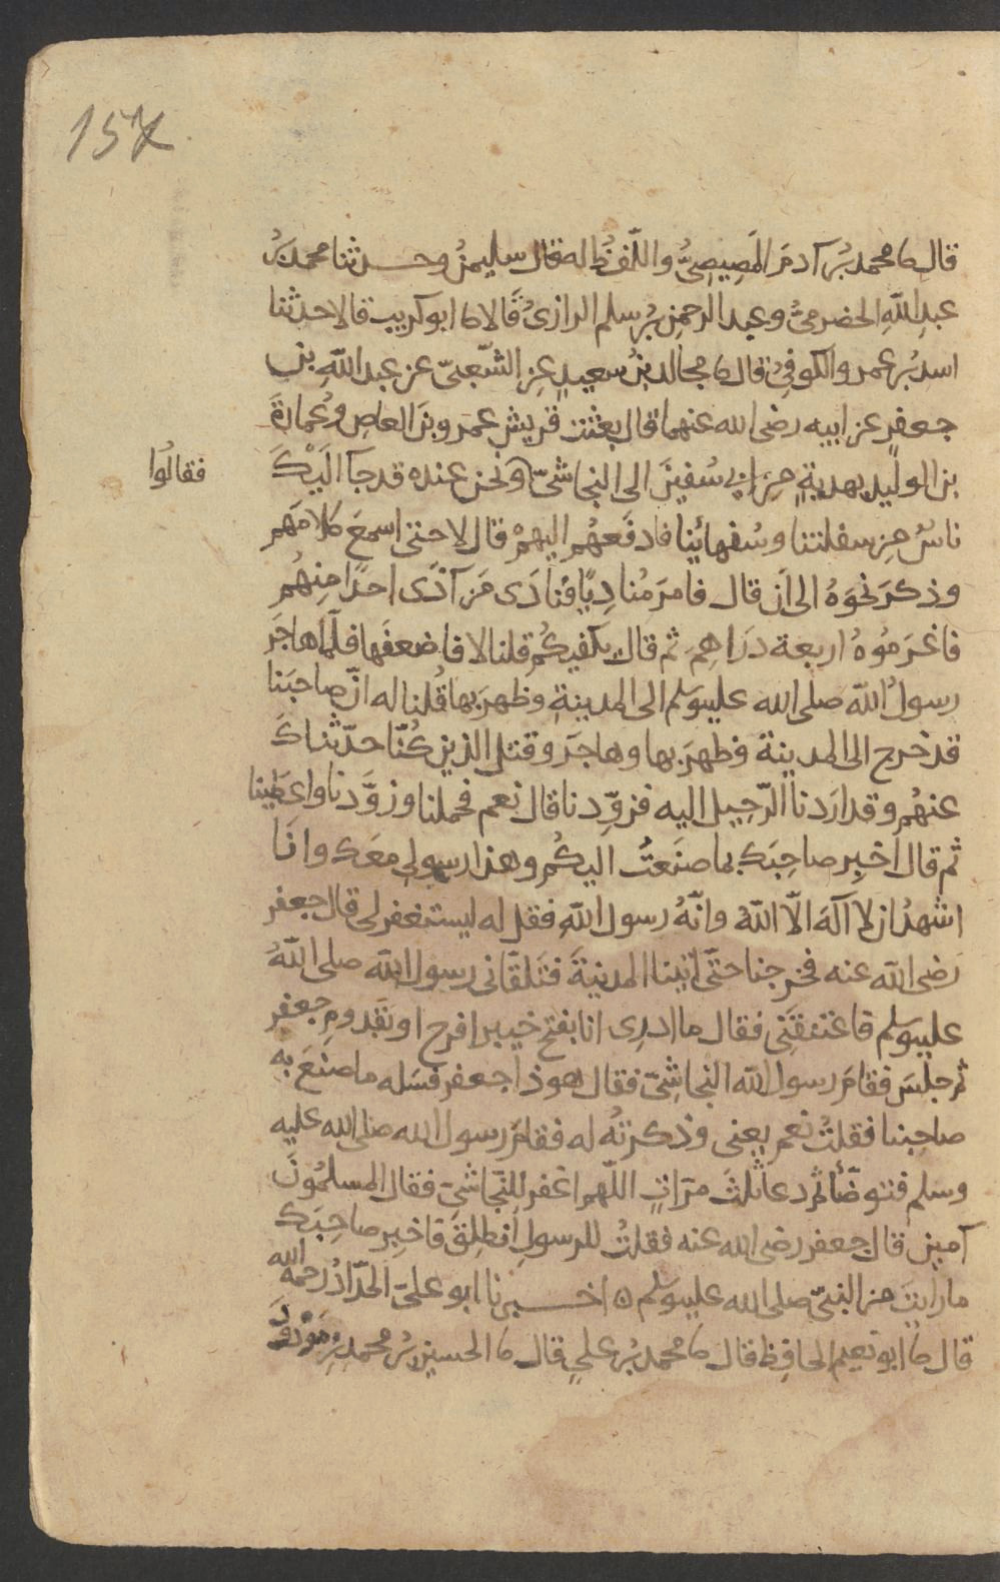 157
قال نا محمد بن آدم المصيصي واللفظ له قال سليمن وحدثنا محمد بن
عبد الله الحضرمي وعبد الرحمن بن سلم الرازي قالا نا ابو كريب قالا حدثنا
اسد بن عمرو الكوفي قال نا مجالد بن سعيد عن الشعبي عن عبد الله بن
جعفر عن ابيه رضى الله عنهما قال بعثت قريش عمرو بن العاص وعمارة
بن الوليد بهدية من ابي سفين الى النجاشي ونحن عنده قد جآ اليك
فقالوا
ناس من سفلتنا وسفهائنا فادفعهم اليهم قال لا حتى اسمع كلامهم
وذكر نحوه الى ان قال فامر مناديًا فنادى من آذى احدًا منهم
فاغرموه اربعة دراهم ثم قال يكفيكم قلنا لا فاضعفها فلما هاجر
رسول الله صلى الله عليه وسلم الى المدينة وظهر بها قلنا له ان صاحبنا
قد خرج الى المدينة وظهر بها وهاجر وقتل الذين كنا حدثناك
عنهم وقد اردنا الرحيل اليه فزودنا قال نعم فحملنا وزودنا واعطينا
ثم قال اخبر صاحبك بما صنعت اليكم وهذا رسولي معك وانا
اشهد ان لا آله الا الله وانه رسول الله فقل له ليستغفر لى قال جعفر
رضى الله عنه فخرجنا حتى اتينا المدينة فتلقانى رسول الله صلى الله
عليه وسلم فاعتنقني فقال ما ادرى انا بفتح خيبر افرح او بقدوم جعفر
ثم جلس فقام رسول الله النجاشي فقال هوذا جعفر فسله ما صنع به
صاحبنا فقلت نعم يعنى وذكرته له فقام رسول الله صلى الله عليه
وسلم فتوضأ ثم دعا ثلث مرات اللهم اغفر للنجاشي فقال المسلمون
آمين قال جعفر رضى الله عنه فقلت للرسول انطلق فاخبر صاحبك
ما رايت من النبي صلى الله عليه وسلم ۞ اخبرنا ابو علي الحداد رحمه الله
قال نا ابو نعيم الحافظ قال نا محمد بن علي قال نا الحسين بن محمد بن مودود